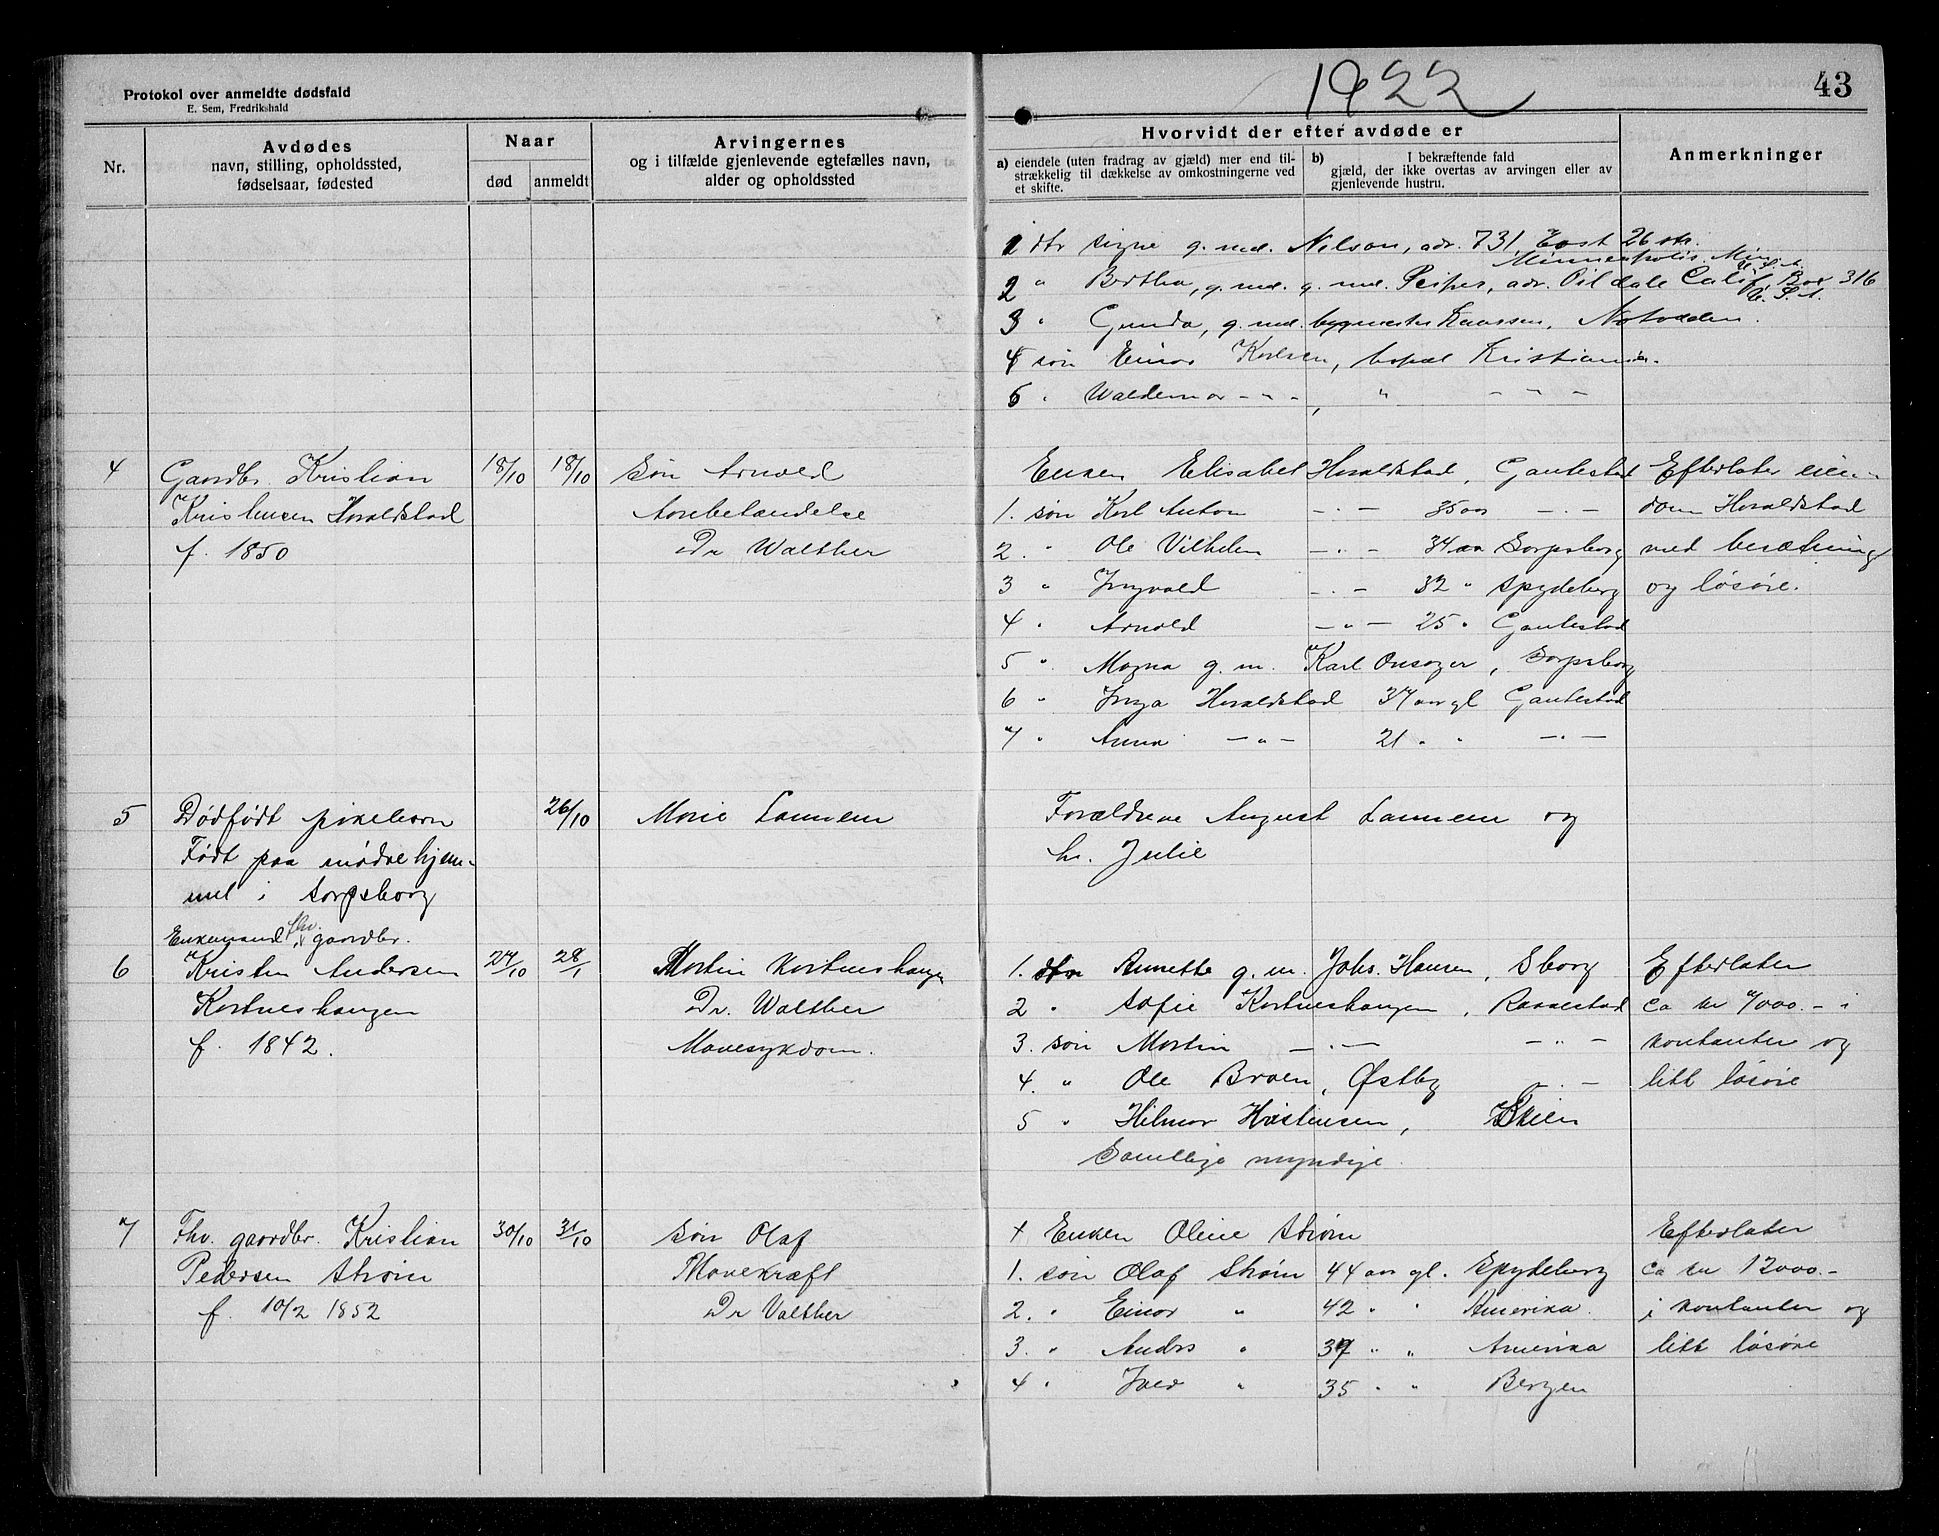 Protokol over anmeldte dødsfald
E. Sem, Fredrikshald
1922
43
Nr.
Avdødes
navn, stilling, opholdssted,
fødselsaar, fødested
Naar
død
anmeldt
Arvingernes
og i tilfælde gjenlevende egtefælles navn,
alder og opholdssted
Hvorvidt der efter avdøde er
a) eiendele (uten fradrag av gjæld) mer end til-
strækkelig til dækkelse av omkostningerne ved
et skifte.
b) I bekræftende fald
gjæld, der ikke overtas av arvingen eller av
gjenlevende hustru.
Anmerkninger
1 dtr Signe g. med. Nilson, adr. 731 East 26 str.
Minneapolis, Min
U.S.A.
2 " Bertha, g. med. g. med. Peiper, adr. Oildale Calif. Box 316
U.S.A.
3 " Gunda, g. med. bygmester Laussen, Notodden.
4 søn Einar Karlsen, bopæl Kristiania.
5 " Waldemar - " - , " - " -
4 Gaardbr. Kristian 18/10 18/10 Søn Arnold
Kristensen Haraldstad Aarebetændelse
f. 1850 Dr Walther
Enken Elisabet Haraldstad, Gautestad Efterlater eien-
1. søn Karl Anton - " - 35 aar - " - dom Haraldstad
2. " Ole Vilhelm - " - 34 aar Sarpsborg med besætning
3 " Ingvald - " - 32 " Spydeberg og løsøre.
4 " Arnold - " - 25 " Gautestad
5 " Magna g. m. Karl Onsager, Sarpsborg
6 " Inga Haraldstad 37 aar gl Gautestad
7 " Anna - " - 21 " " - " -
5 Dødfødt pikebarn 26/10 Marie Lannem
Født paa mødrehjem-
met i Sarpsborg
Forældrene August Lannem og
h. Julie
Enkemand, fhv. gaardbr.
6 Kristen Andersen 27/10 28/1 Martin Kortneshaugen
Kortneshaugen Dr. Walther
f. 1842. Mavesykdom.
1. dtr Annette g. m. Johs. Hansen, Sborg Efterlater
2 " Sofie Kortneshaugen, Rakkestad ca kr 7000.- i
3. søn Martin - " - - " - kontanter og
4. " Ole Braen, Østby - " - litt løsøre
5 " Hilmar Kristensen, Skien
Samtlige myndige.
7 Fhv. gaardbr. Kristian 30/10 31/10 Søn Olaf
Pedersen Strøm Mavekræft
f. 10/2 1852 Dr Valther
+ Enken Oline Strøm Efterlater
1. søn Olaf Strøm 44 aar gl. Spydeberg ca kr 12000.-
2. " Einar " 42 " " Amerika. i kontanter og
3. " Anders " 37 " " Amerika litt løsøre
4 " Iver " 35 " " Bergen